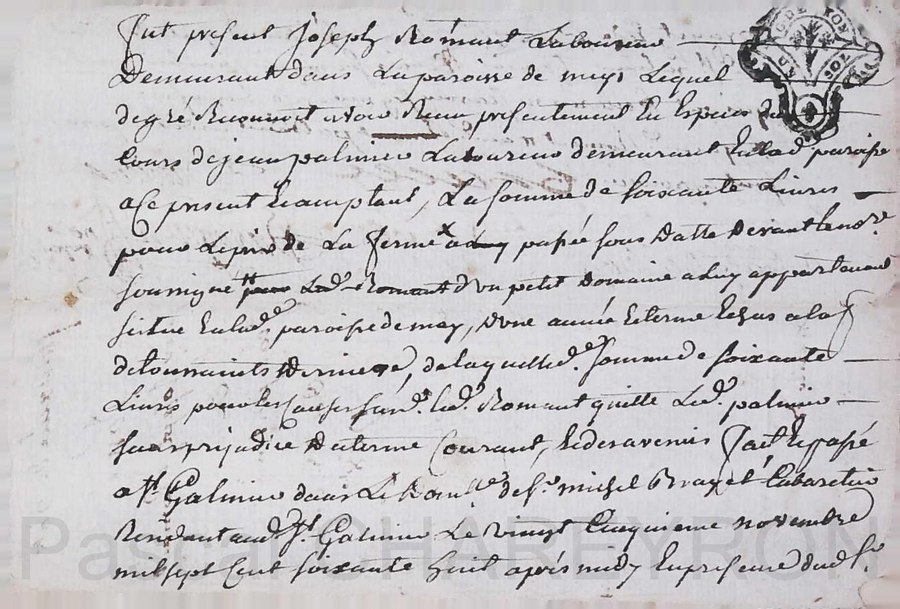 fut present Joseph Romant Laboureur
Demeurant dans La paroisse de meys Lequel
de gré Reconnoit avoir Receu presentement En Especes de
Cours de jean palmier Laboureur demeurant En lad. paroisse
a Ce present Ecomptant, La somme de soixante Livres
pour Le prix de La ferme passée sous Datte Devant le nore.
soussigné Led. Romant d'un petit Domaine a Luy appartenant
situé En lad. paroisse de mey, d'une année Et terme Echus a la f
de toussaints Derniere, de laquelle d. somme de soixante
Livres pour les Causes sus d. led. Romant quitte Led. palmier
sans prejudice du terme Courant, Et des avenir fait Et passé
a St. Galmier dans Le domlle de sr. michel Cabaretier
Residant aud. St. Galmier Le vingt Cinquieme novembre
mil sept Cent soixante huit après midy En presence du d. sr
Pascal CHAREYRON